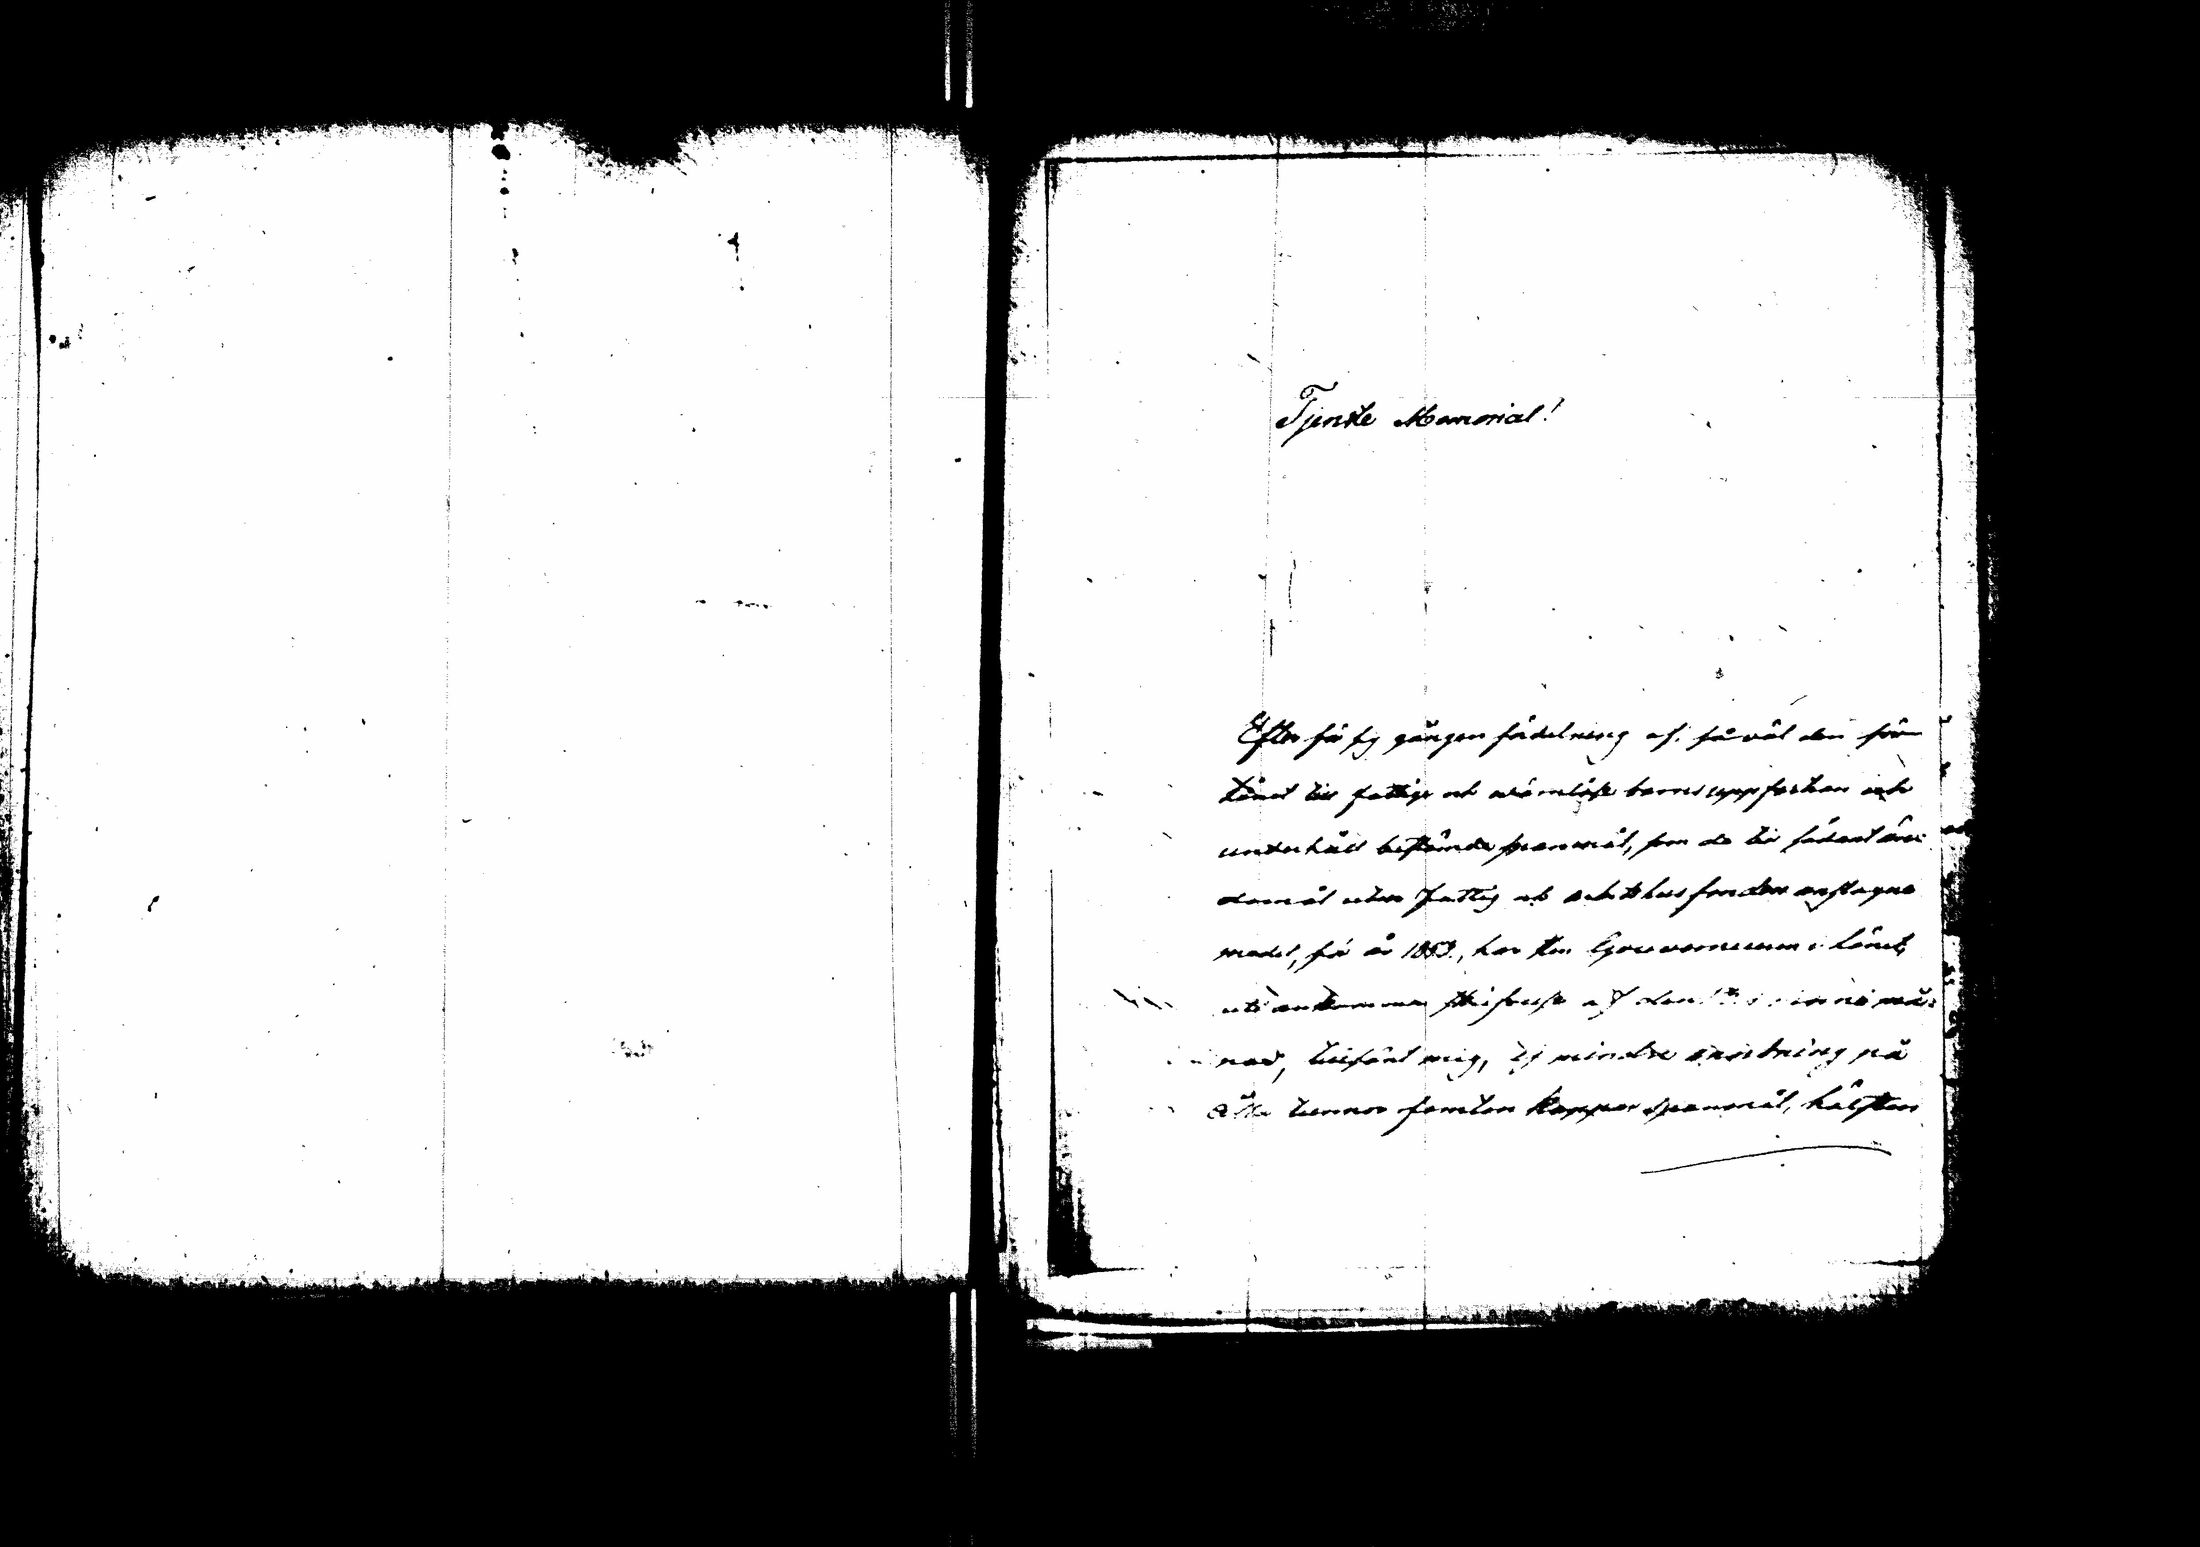 Tjenste Memorial!
Efter för sig gången fördelning af, så väl den för
länet till fattige och wärnlöse barns uppfostran och
underhåll bestämde spanmål, som de till sådant än-
damål utur Fattig och arbetshusfonden anslagne
medel, för år 1853, har Herr Gouverneuren i länet,
uti ankommen skrifvelse af den innevarande må-
nad, tillsändt mig, ej mindre anordning på
åtta tunnor femton kappar spanmål, hälften